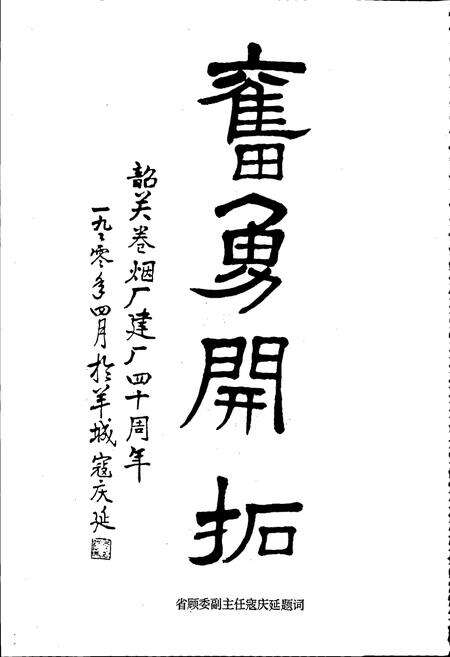 奮勇開拓
韶关卷烟厂建厂四十周年
一九九零年四月於羊城寇庆延
省顾委副主任寇庆延题词